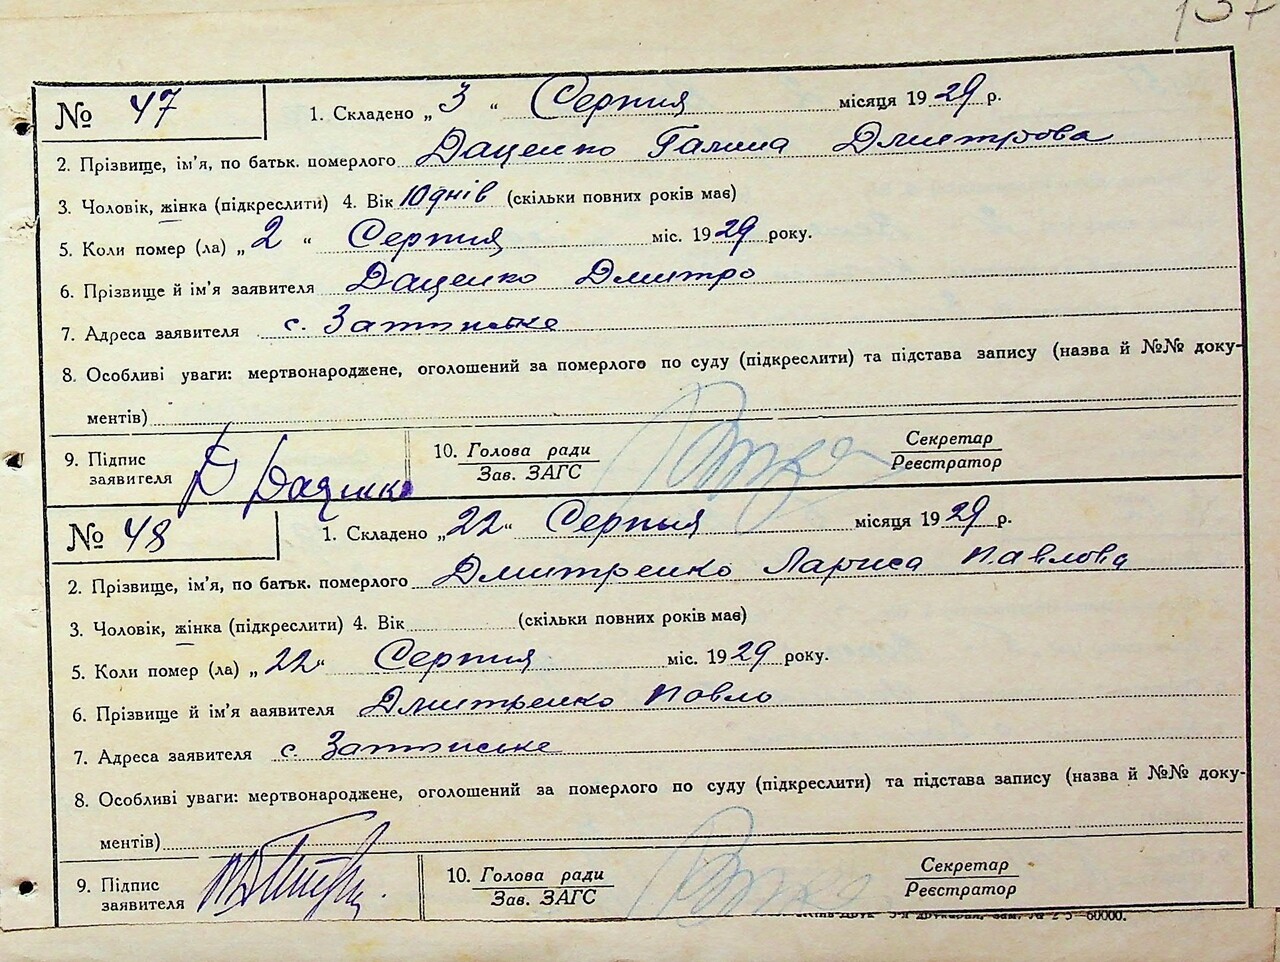 137
№ 47 1. Складено „3“ Серпня місяця 1929 р.
2. Прізвище, ім'я, по батьк. померлого Даценко Галина Дмитрова
3. Чоловік, жінка (підкреслити) 4. Вік 10 днів (скільки повних років має)
5. Коли помер (ла) „2“ Серпня міс. 1929 року.
6. Прізвище й ім'я заявителя Даценко Дмитро
7. Адреса заявителя с. Затиське
8. Особливі уваги: мертвонароджене, оголошений за померлого по суду (підкреслити) та підстава запису (назва й №№ доку-
ментів)
9. Підпис заявителя Д Даценко 10. Голова ради Зав. ЗАГС Секретар Реєстратор
№ 48 1. Складено „22“ Серпня місяця 1929 р.
2. Прізвище, ім'я, по батьк. померлого Дмитренко Лариса Павлова
3. Чоловік, жінка (підкреслити) 4. Вік (скільки повних років має)
5. Коли помер (ла) „22“ Серпня міс. 1929 року.
6. Прізвище й ім'я ааявителя Дмитренко Павло
7. Адреса заявителя с. Затиське
8. Особливі уваги: мертвонароджене, оголошений за померлого по суду (підкреслити) та підстава запису (назва й №№ доку-
ментів)
9. Підпис заявителя 10. Голова ради Зав. ЗАГС Секретар Реєстратор
60000.